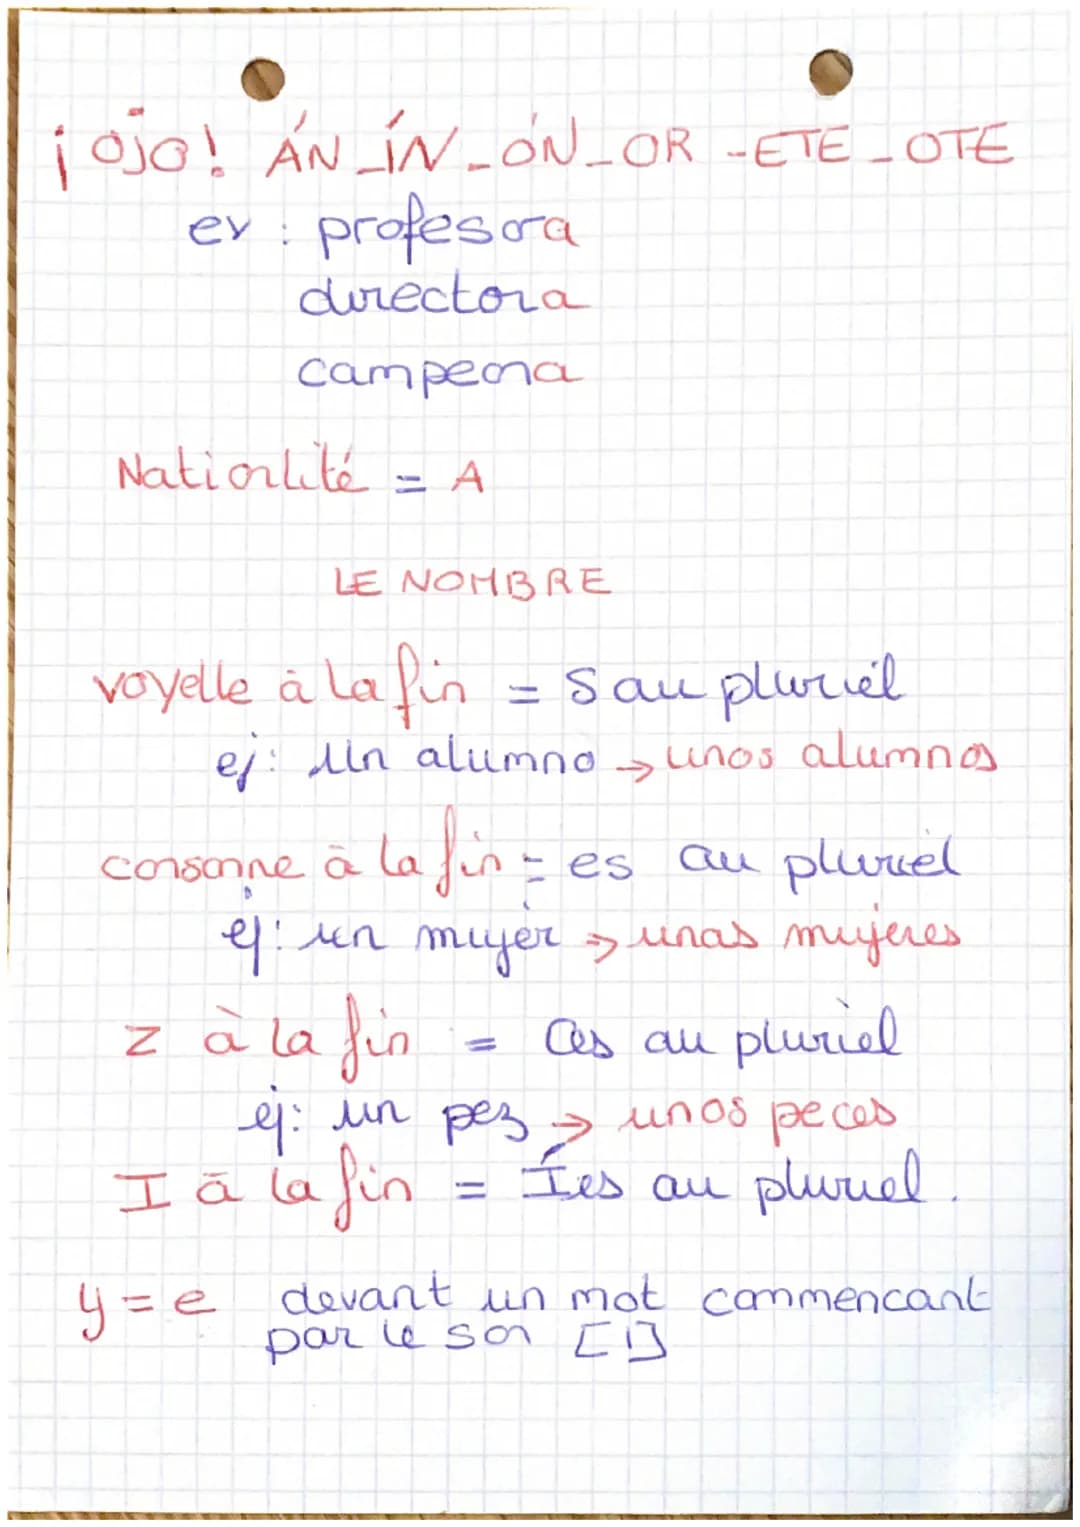 ¡ojo! ÁN_ÍN_ÓN_OR -ETE_OTE
ex : profesora
directora
campeona
Nationlité = A
LE NOMBRE
voyelle à la fin = S au pluriel
ej: un alumno → unos alumnos
consonne à la fin = es au pluriel
ej: un mujer → unas mujeres
Z à la fin = Ces au pluriel
ej: un pez → unos peces
I à la fin = Íes au pluriel.
y = e devant un mot commencant
par le son [I]